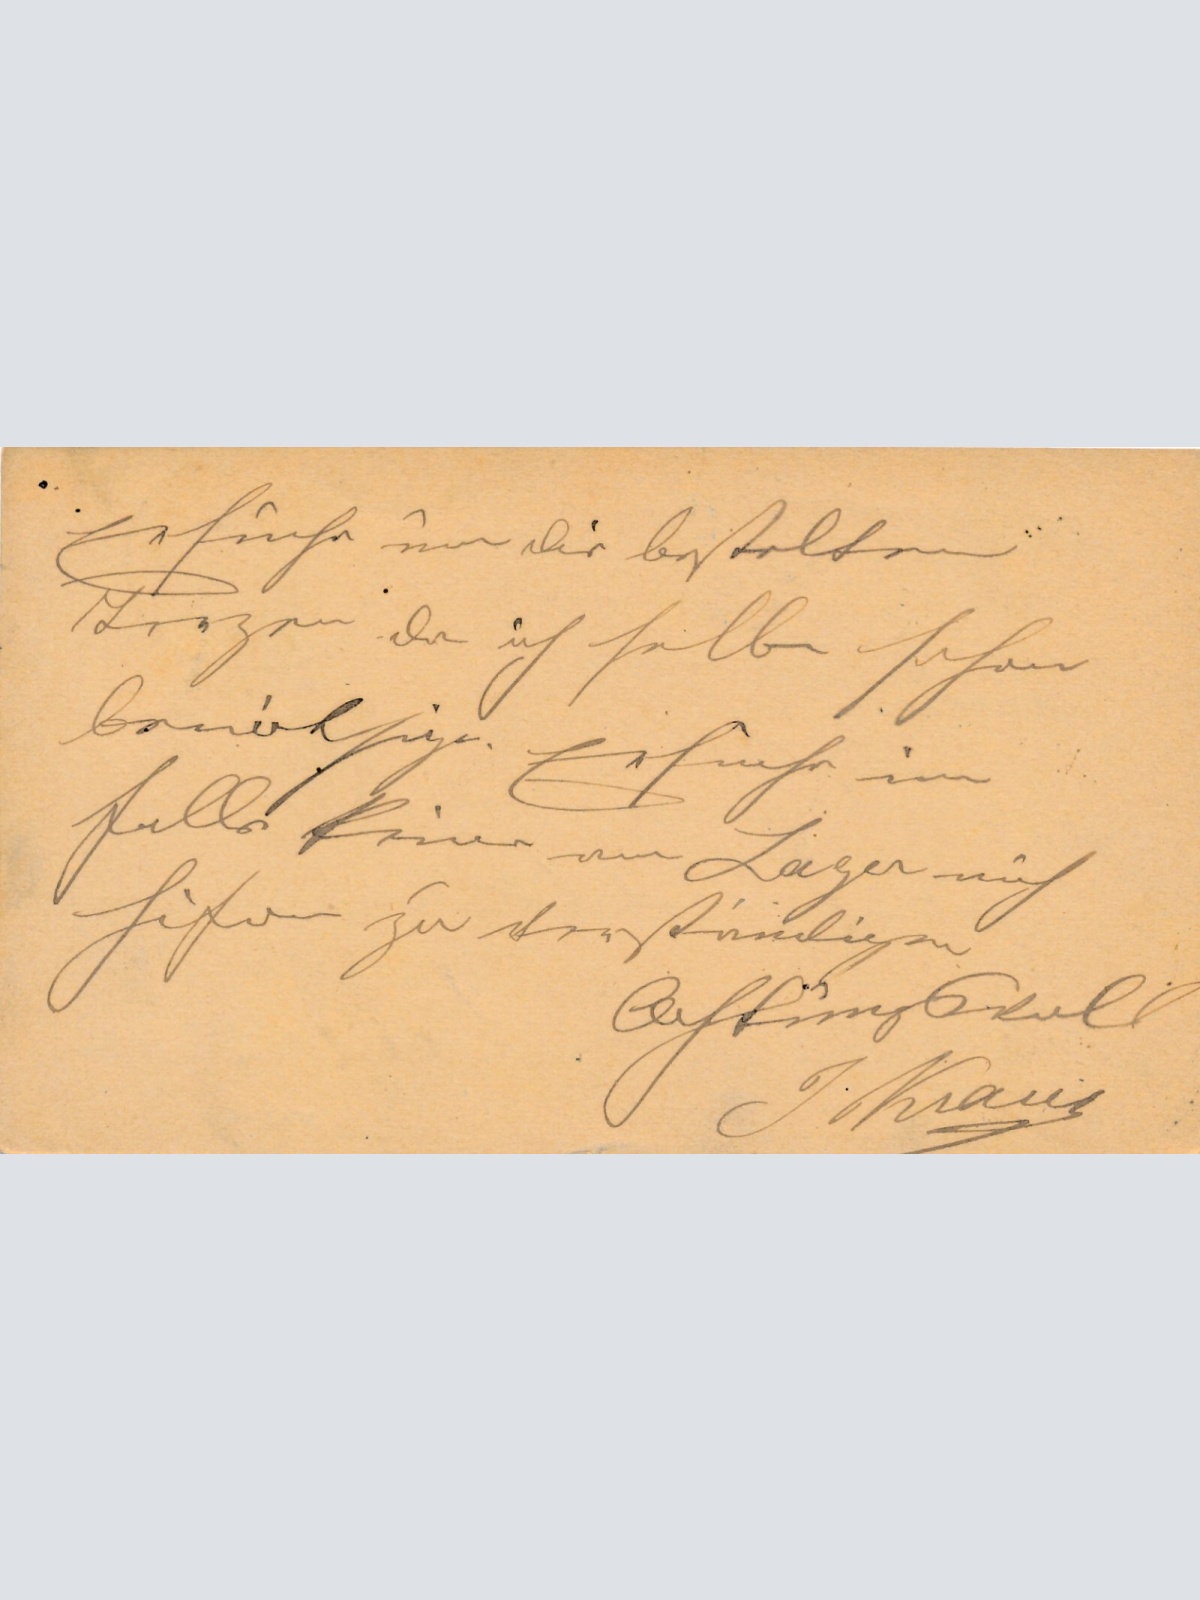 Ersuche um die bestelten
da ich selbe schon
Ersuche im
falle keine am Lager mich
zu verständigen
Achtungsvoll
J. Kraus